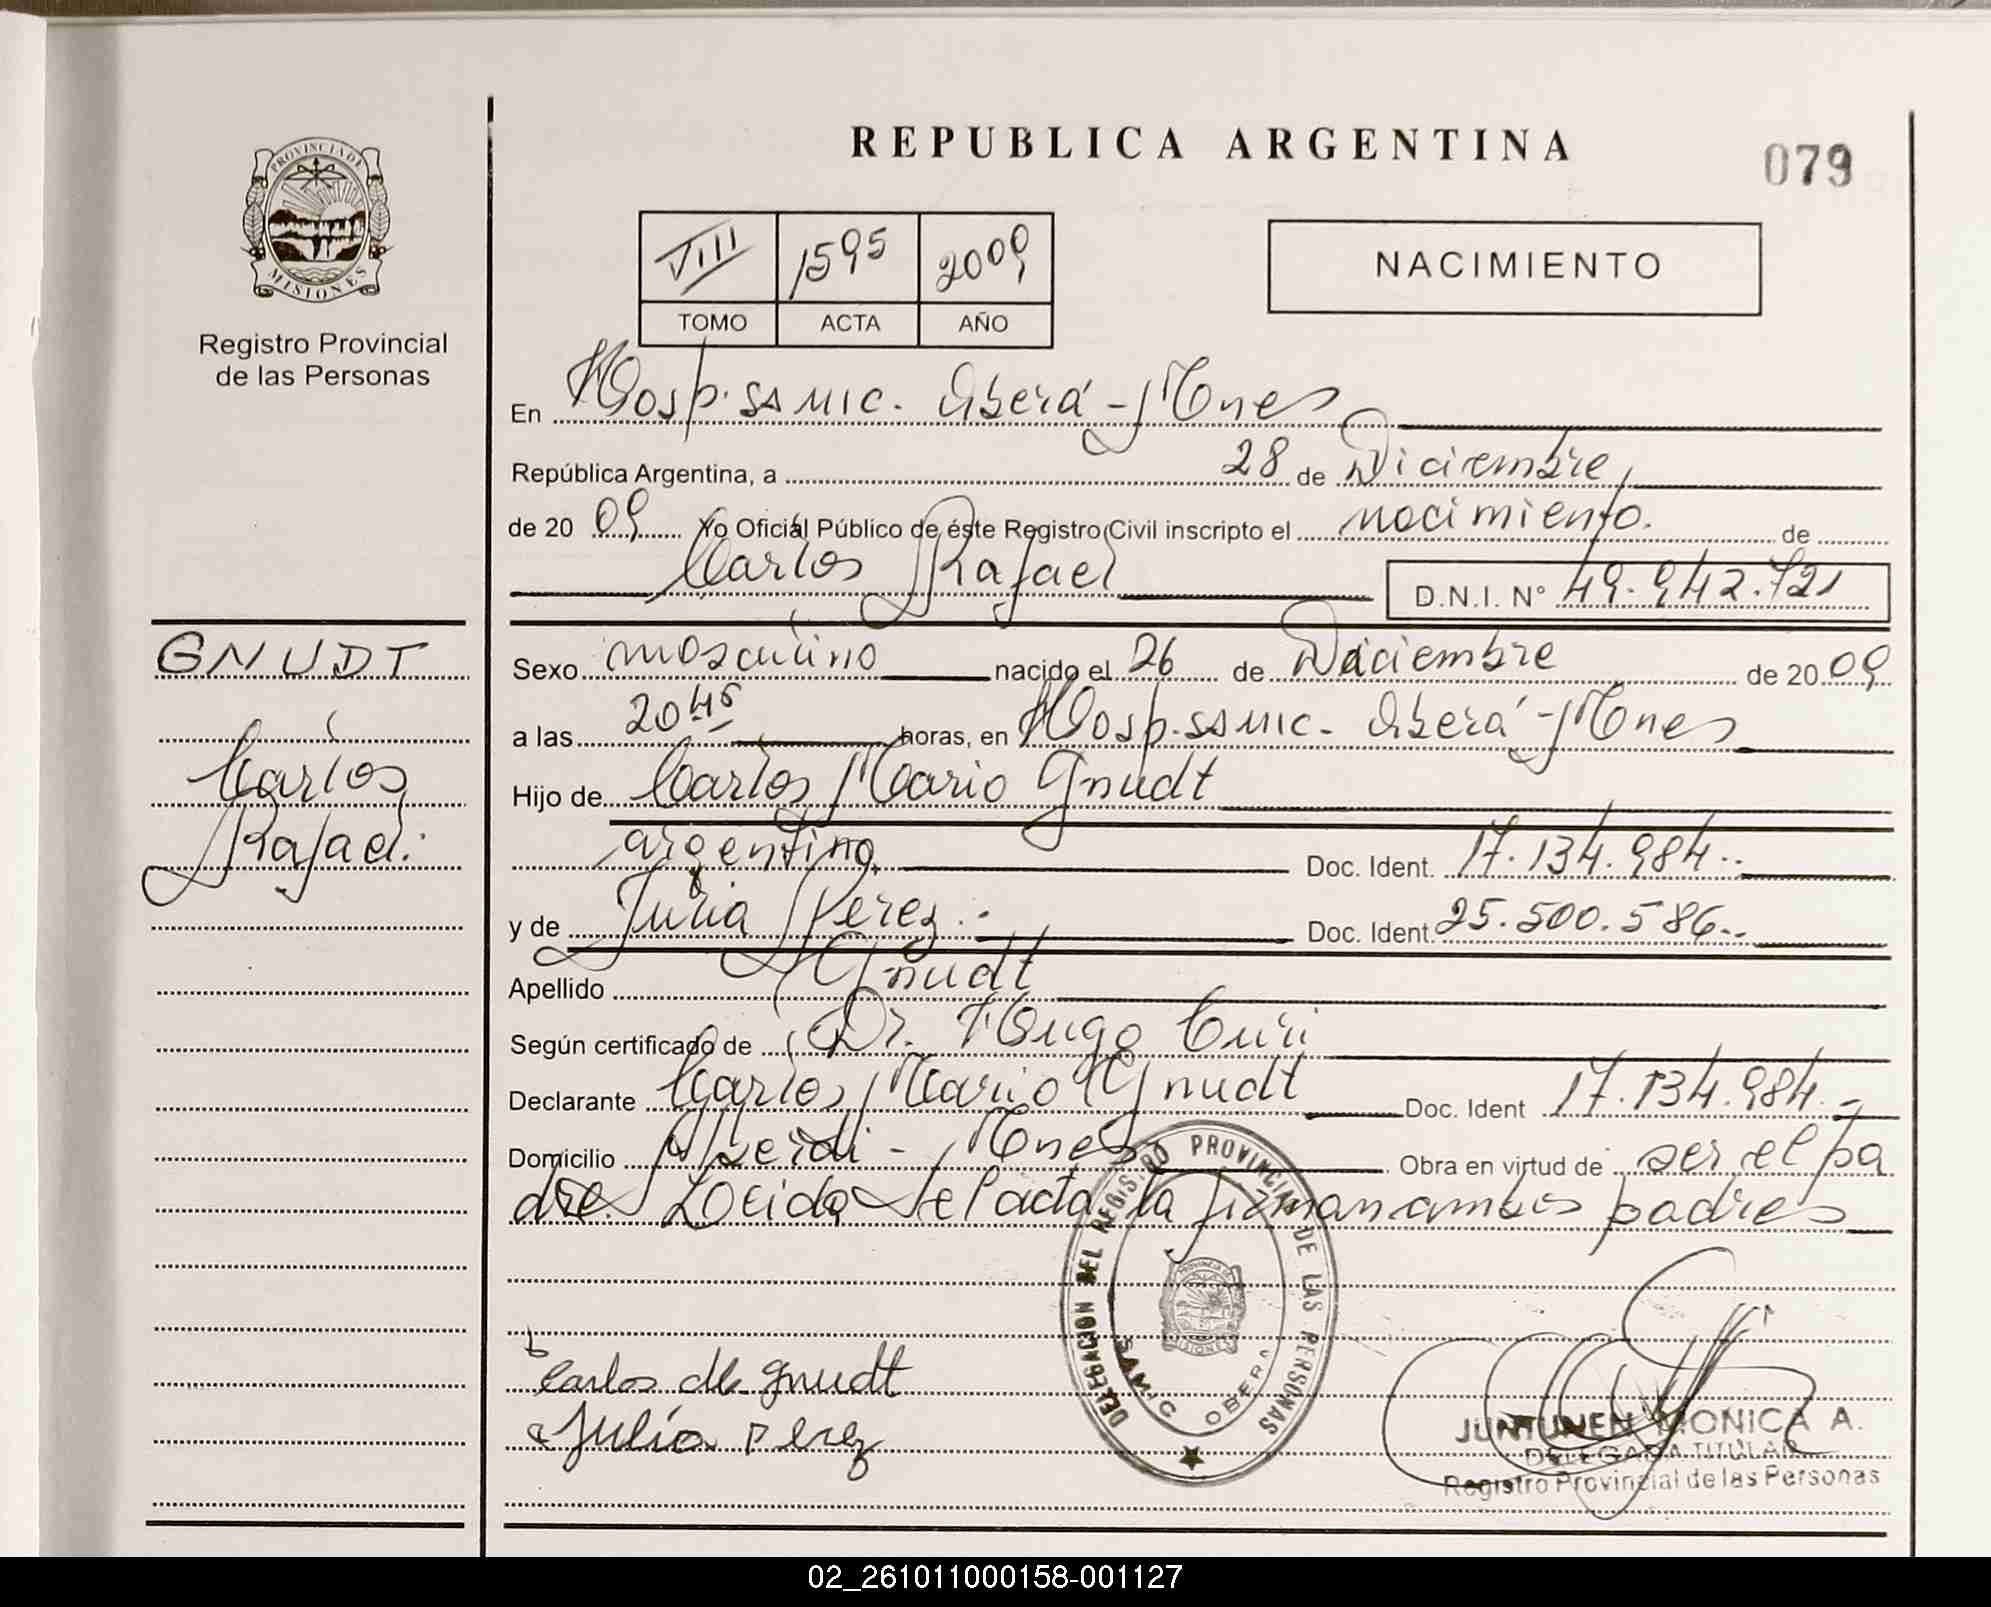 REPUBLICA ARGENTINA
079
PROVINCIA DE
MISIONES
Registro Provincial
de las Personas
VIII 1595 2009
TOMO ACTA AÑO
NACIMIENTO
En Hosp. SAMIC. Oberá - Mnes
República Argentina, a 28 de Diciembre,
de 20 09 Yo Oficial Público de éste Registro Civil inscripto el nacimiento. de
Carlos Rafael
D.N.I. N° 49.942.721
GNUDT
Carlos
Rafael.
Sexo masculino nacido el 26 de Diciembre de 20 09
a las 20 45 horas, en Hosp. SAMIC. Oberá - Mnes
Hijo de Carlos Mario Gnudt
argentino Doc. Ident. 17.134.984..
y de Julia Perez.- Doc. Ident. 25.500.586..
Apellido Gnudt
Según certificado de Dr. Hugo Curi
Declarante Carlos Mario Gnudt Doc. Ident 17.134.984.-
Domicilio Alberdi - Mnes Obra en virtud de ser el pa
dre. Leida el acta la firman ambos padres
DELEGACION DEL REGISTRO PROVINCIAL DE LAS PERSONAS
PROVINCIA DE
MISIONES
SAMIC OBERA
Carlos M Gnudt
Julia Perez
JUNTUNEN MONICA A.
DELEGADA TITULAR
Registro Provincial de las Personas
02_261011000158-001127